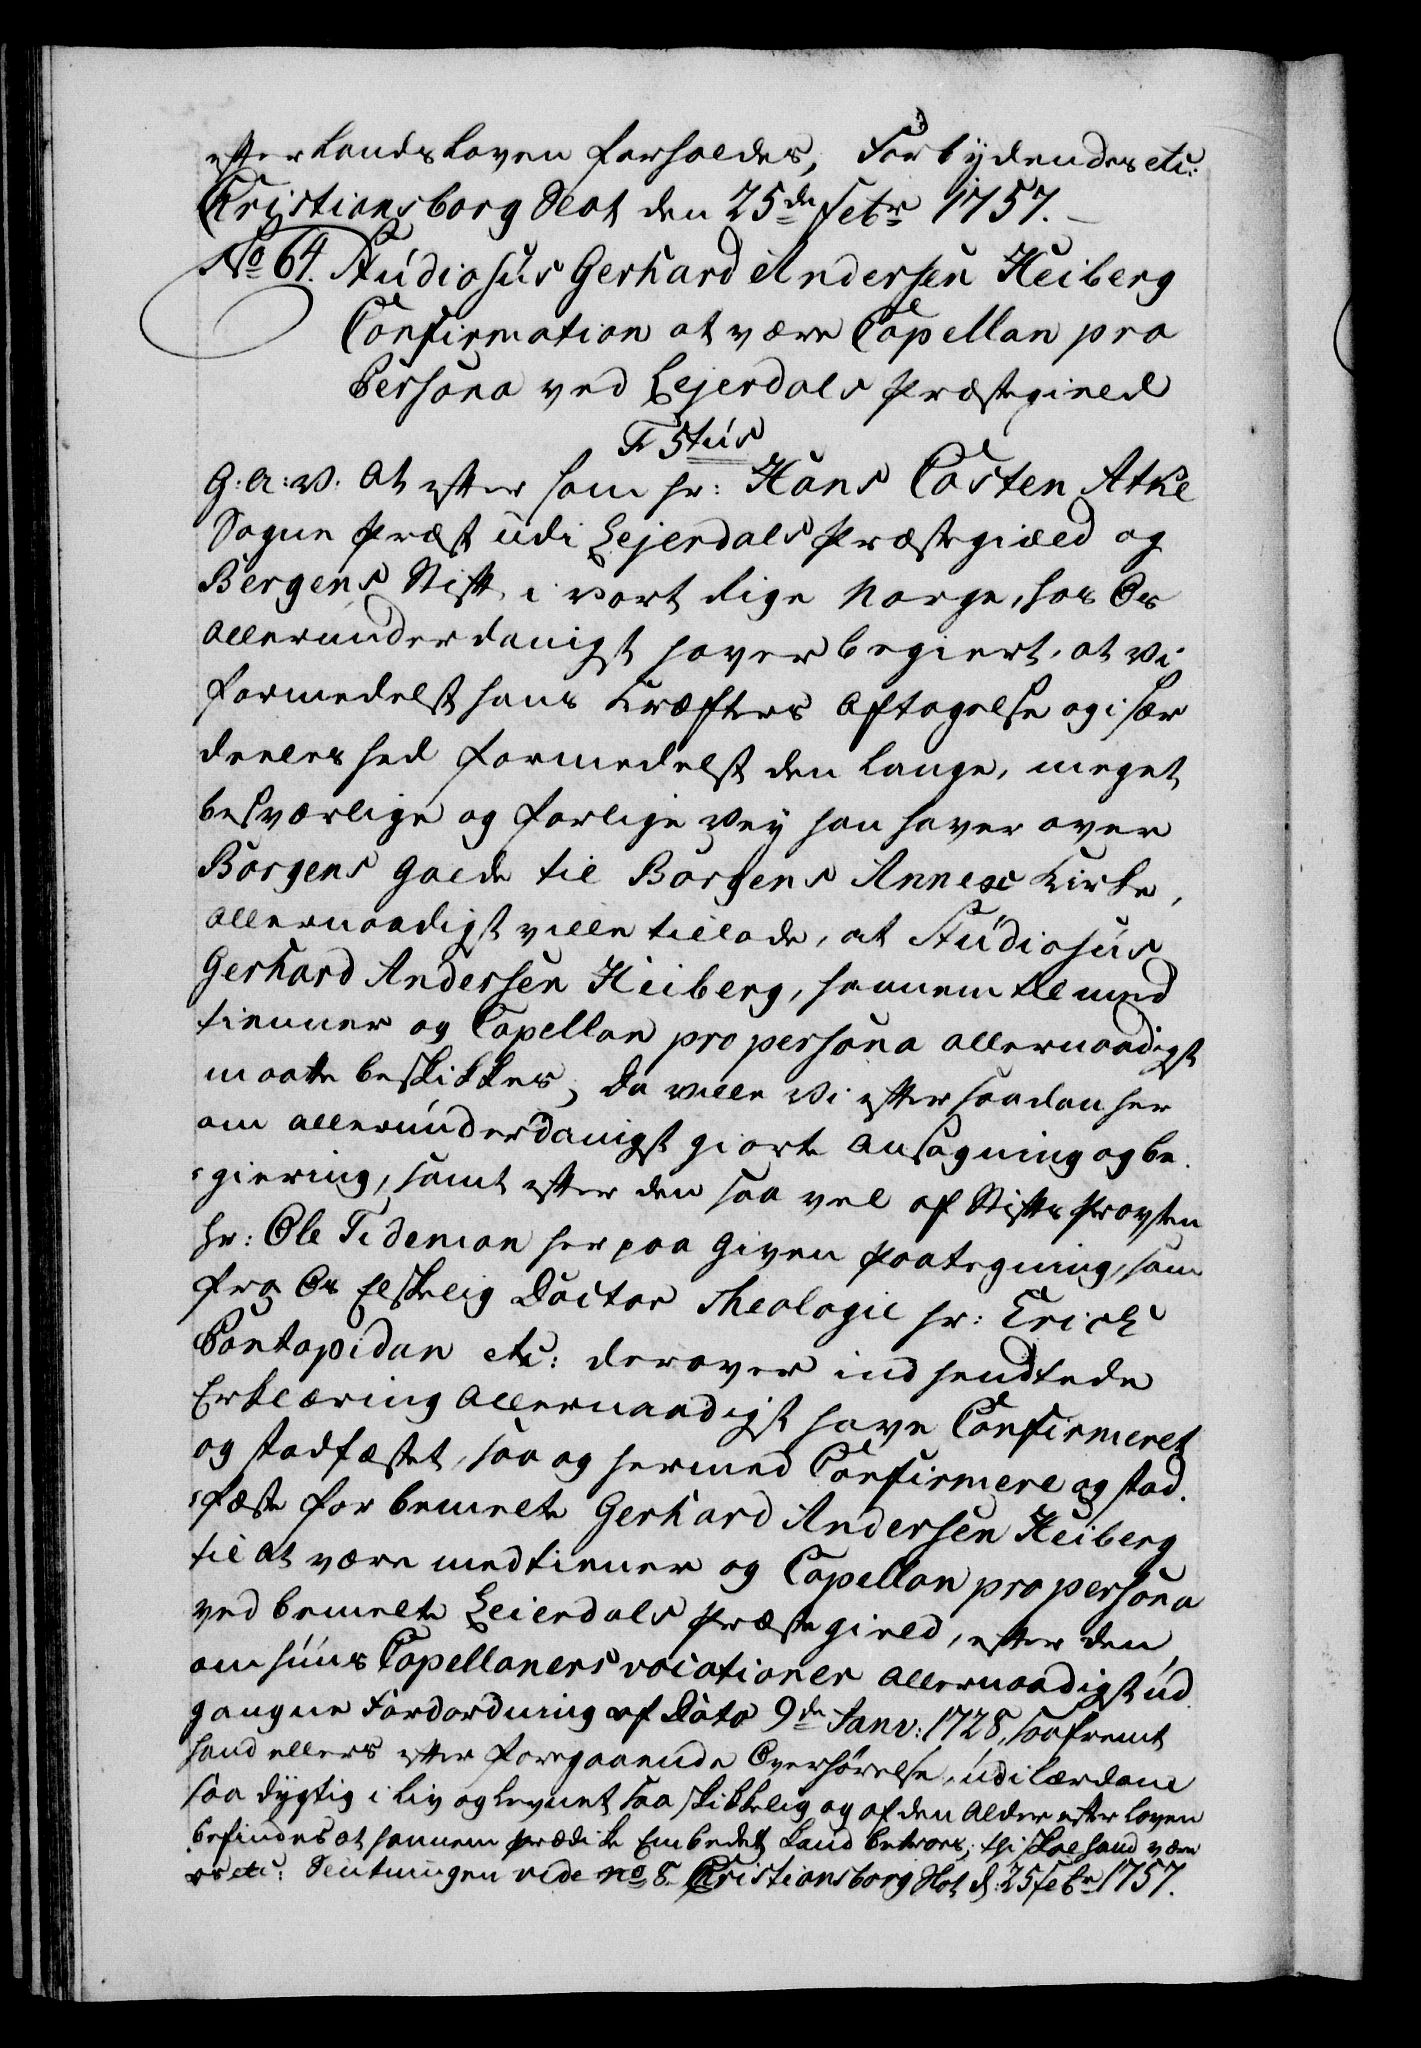 efter Lands Loven forholdes, Forbydendes etc:
Christiansborg Slot den 25de Febr 1757.
No 64. Studiosus Gerhard Andersen Heiberg
Confirmation at være Capellan pro
Persona ved Lejerdals Præstegield
F 5tus
G: A: V. At efter som hr: Hans Casten Atke
Sogne Præst udi Lejerdals Præstegiæld og
Bergens Stift i vort Rige Norge, hos Os
allerunderdanigst haver begiert, at Vi
formedelst hans Kræfters Aftagelse og i sær
deeleshed formedelst den lange, meget
besværlige og farlige Vey han haver over
Borgens Field til Borgens Annex Kirke,
allernaadigst ville tillade, at Studiosus
Gerhard Andersen Heiberg, hannem til med
tienner og Capellan pro persona allernaadigst
maatte beskikkes; Da ville Vi efter saadan her
om allerunderdanigst giorte Ansøgning og be
giering, samt efter den saa vel af Stifts Provsten
hr: Ole Tideman her paa given Paategning, som
fra Os Elskelig Doctor Theologiæ hr: Erich
Pontopidan etc: derover ind sendtede
Erklæring Allernaadigst have Confirmeret
og stadfæstet, saa og hermed Confirmere og stad
fæste forbemelte Gerhard Andersen Heiberg
til at være medtiener og Capellan pro persona
ved bemelte Leierdals Præstegield, efter den,
om huus Capellaners vocationer allernaadigst ud
gangne Forordning af Dato 9de Janv: 1728, saafremt
hand ellers efter foregaaende Overhørelse, udi lærdom
saa dygtig i Liv og Levnet saa skikkelig og af den Alder efter Loven
befindes at hannem Prædike Embedet kand betroes; thi skal hand være
os etc: Slutningen vide no 8. Christiansborg Slot d: 25 Febr 1757.